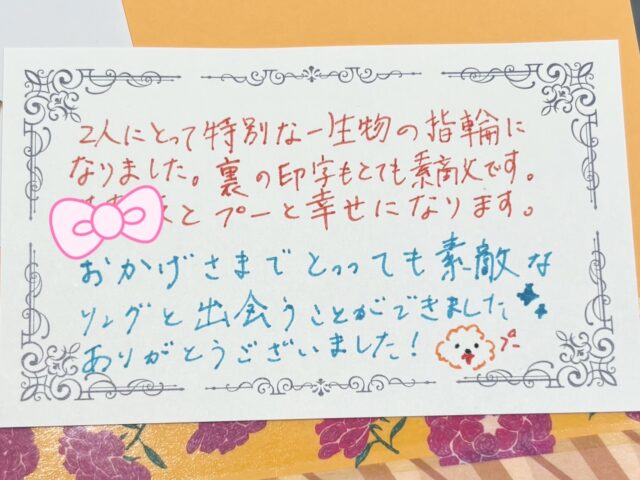 2人にとって特別な一生物の指輪に
なりました。裏の印字もとても素敵です。
とプーと幸せになります。
おかげさまでとっっても素敵な
リングと出会うことができました
ありがとうございました!
プー